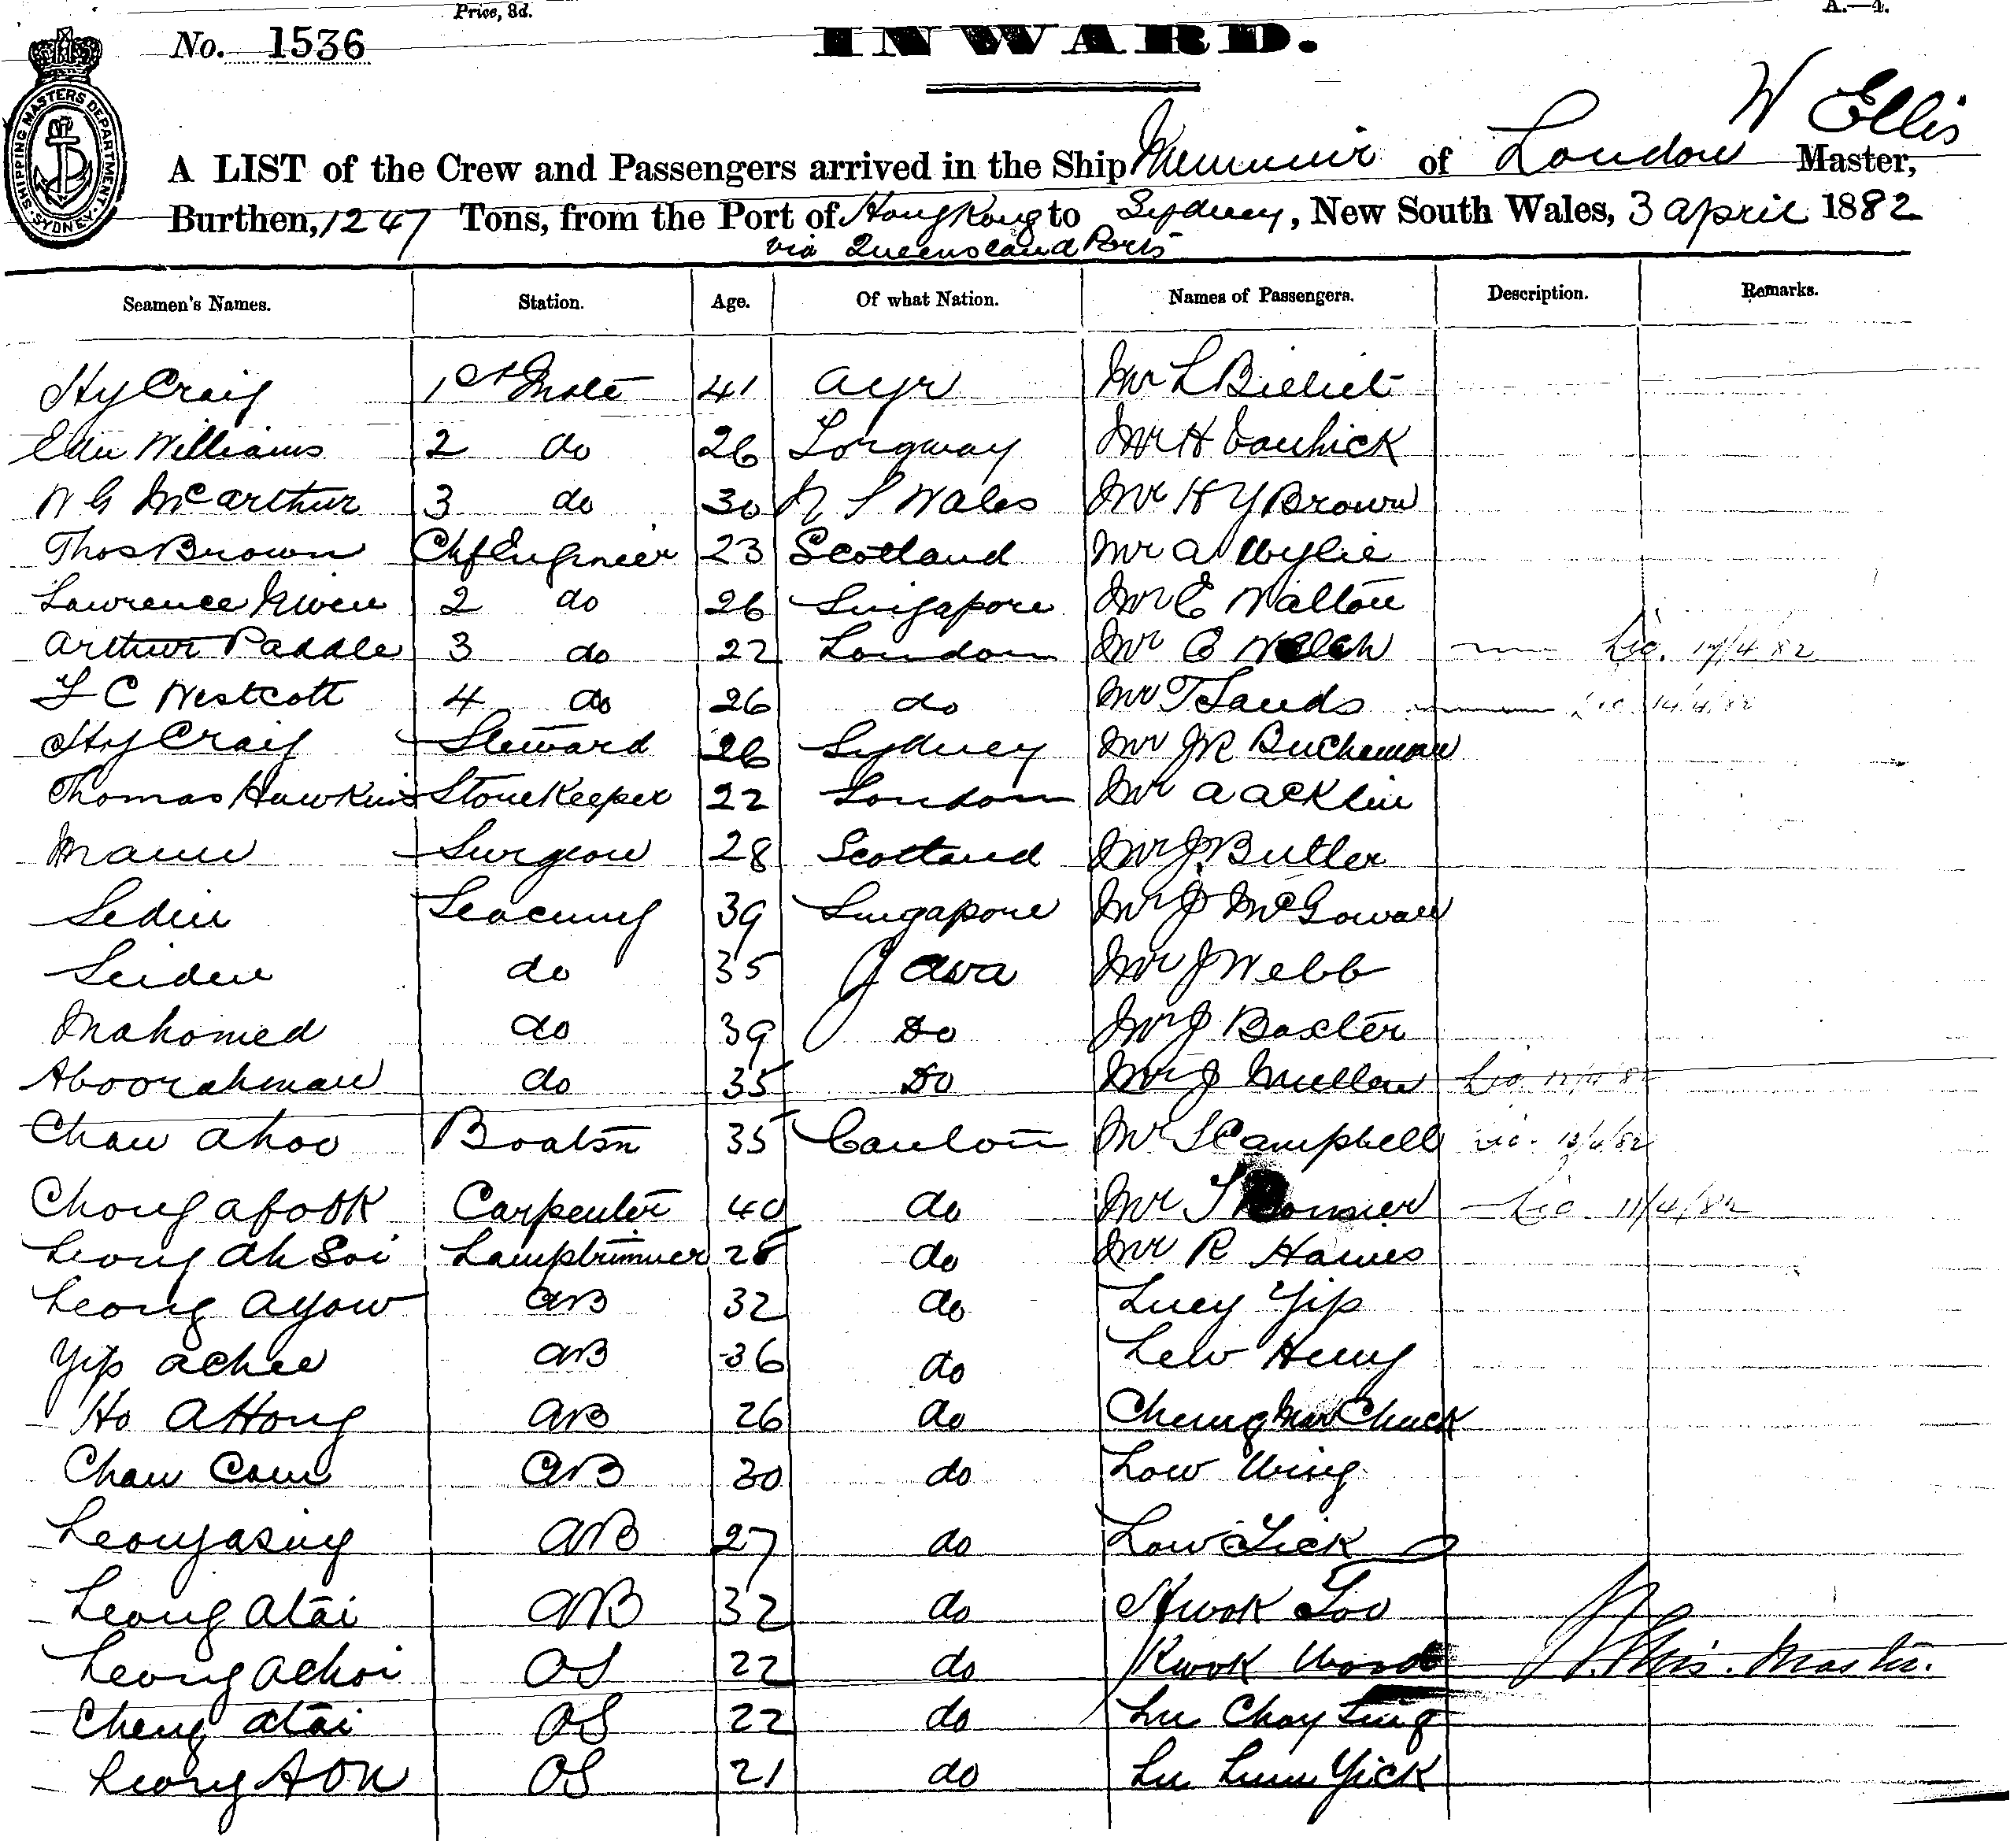 Price, 3d.
A.—4.
No. 1536
INWARD.
SHIPPING MASTERS DEPARTMENT. SYDNEY.
W Ellis
A LIST of the Crew and Passengers arrived in the Ship of London Master,
Burthen, 1247 Tons, from the Port of Hong Kong to Sydney, New South Wales, 3 april 1882
via Queensland Ports
Seamen's Names. Station. Age. Of what Nation. Names of Passengers. Description. Remarks.
Hy Craig 1st Mate 41 Ayr Mr L
Edw Williams 2 do 26 Mr H
W G McArthur 3 do 30 N S Wales Mr H Y Brown
Thos Brown Chf Engineer 23 Scotland Mr A Wylie
Lawrence 2 do 26 Singapore Mr E Walton
Arthur Paddle 3 do 22 London Mr Welch 14/4/82
F C Westcott 4 do 26 do Mr T Sands 14/4/82
Hy Craig Steward 26 Sydney Mr J R Buchanan
Thomas Hawkins Storekeeper 22 London Mr A Acklin
Mann Surgeon 28 Scotland Mr J Butler
Sedin Seacunny 39 Singapore Mr J McGowan
Seiden do 35 Java Mr J Webb
Mahomed do 39 Do Mr J Baxter
Aboorahman do 35 Do Mr J Mullen
Chan Ahoo Boatsn 35 Canton Mr S Campbell 13/4/82
Chong Afook Carpenter 40 do Mr T 11/4/82
Leong Ah Soi Lamptrimmer 28 do Mr R Hawes
Leong Ayow AB 32 do Lucy Yip
Yip Achee AB 36 do Lew Hung
Ho AHong AB 26 do Cheung Chuck
Chan Cam AB 30 do Low Wing
Leong asing AB 27 do Low Lick
Leong Atai AB 32 do Kwok Loo
Leong Achoi OS 22 do Kwok
W. Ellis. Master.
Cheng Atai OS 22 do Lu Choy Ling
Leong AOn OS 21 do Lu Lum Yick